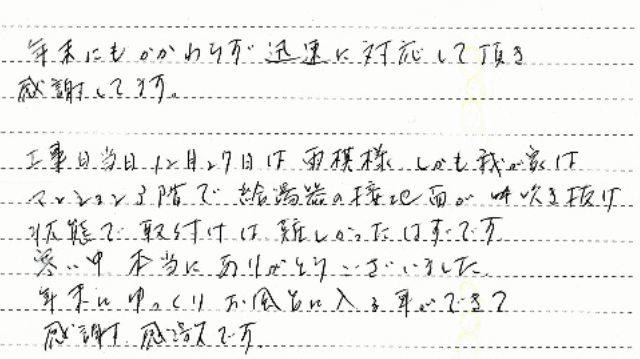 年末にもかかわらず迅速に対応して頂き
感謝してます。
工事日当日12月27日は雨模様 しかも我が家は
マンション3階で給湯器の接地面が吹き抜け
状態で取り付けは難しかったはずです
寒い中 本当にありがとうございました
年末にゆっくりお風呂に入る事ができて
感謝、感激です。